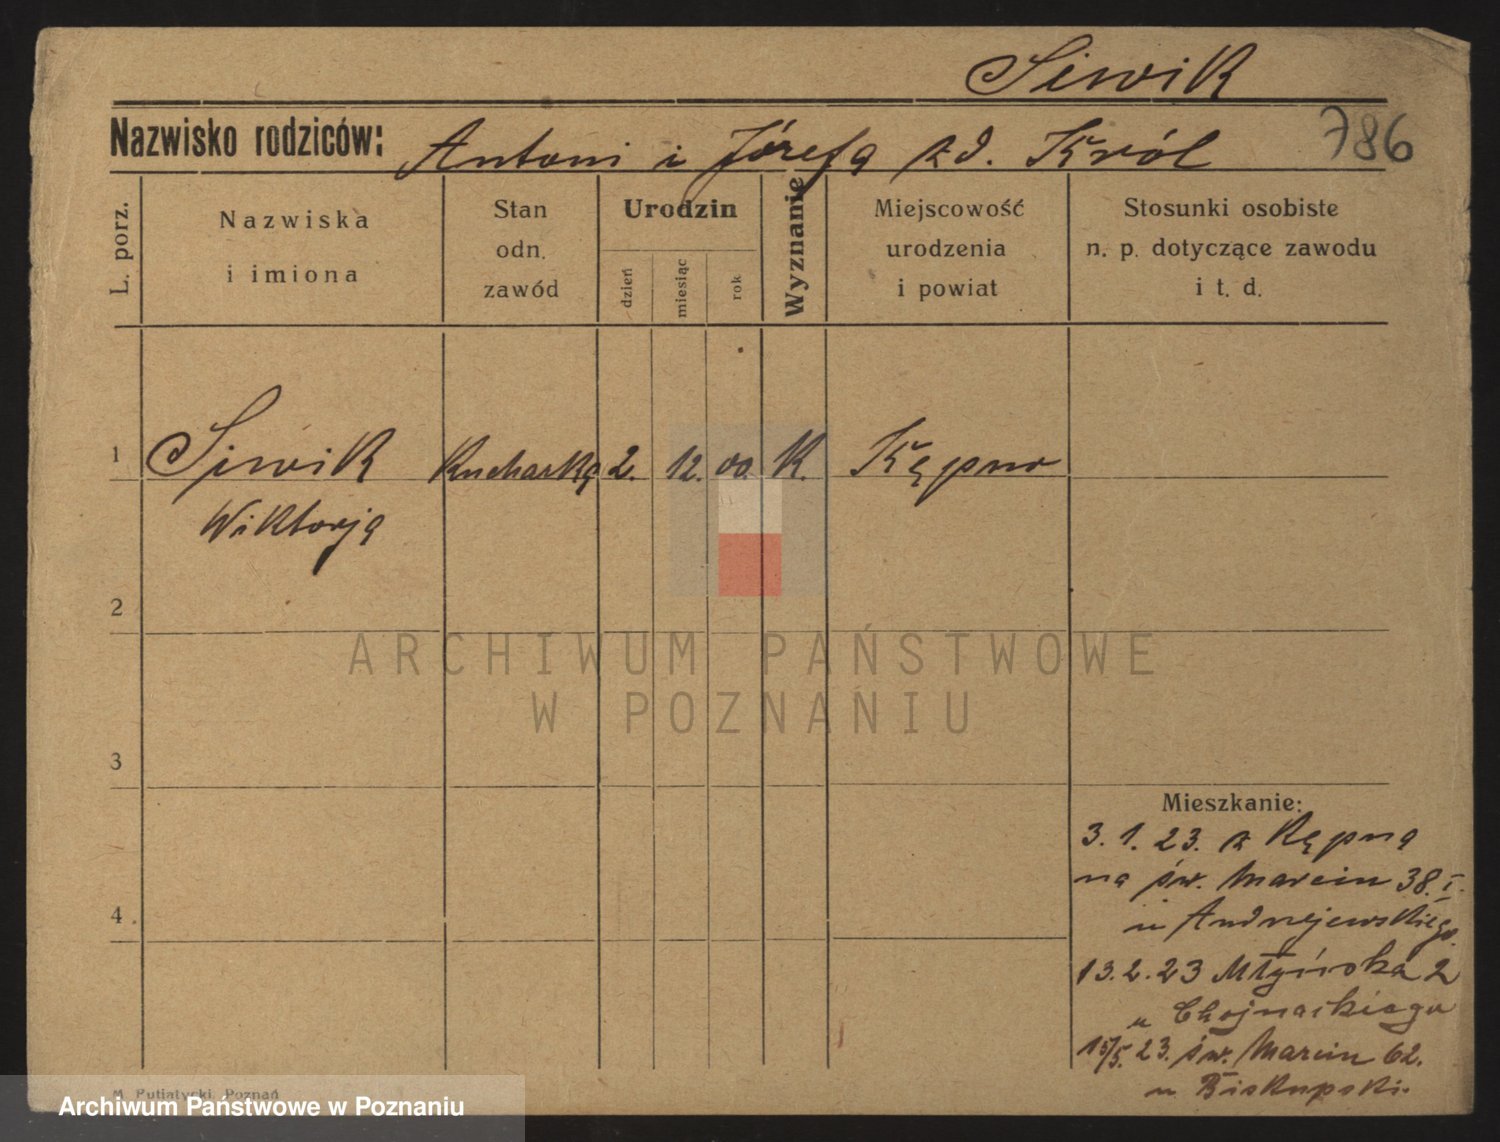 Siwik
Nazwisko rodziców: Antoni i Józefa zd. Król 786
L. porz.
Nazwiska i imiona
Stan odn. zawód
Urodzin
dzień miesiąc rok
Wyznanie
Miejscowość urodzenia i powiat
Stosunki osobiste n. p. dotyczące zawodu i t. d.
1 Siwik Kucharka 2. 12. 00. K. Kępno
Wiktorja
2
ARCHIWUM PAŃSTWOWE
W POZNANIU
3
Mieszkanie:
3. 1. 23. z Kępna
na św. Marcin 38. I.
u Andrzejewskiego.
4
13. 2. 23 Młyńska 2
u Chojnackiego
15/5. 23. św. Marcin 62.
u Biskupski.
M. Putiatycki, Poznań
Archiwum Państwowe w Poznaniu